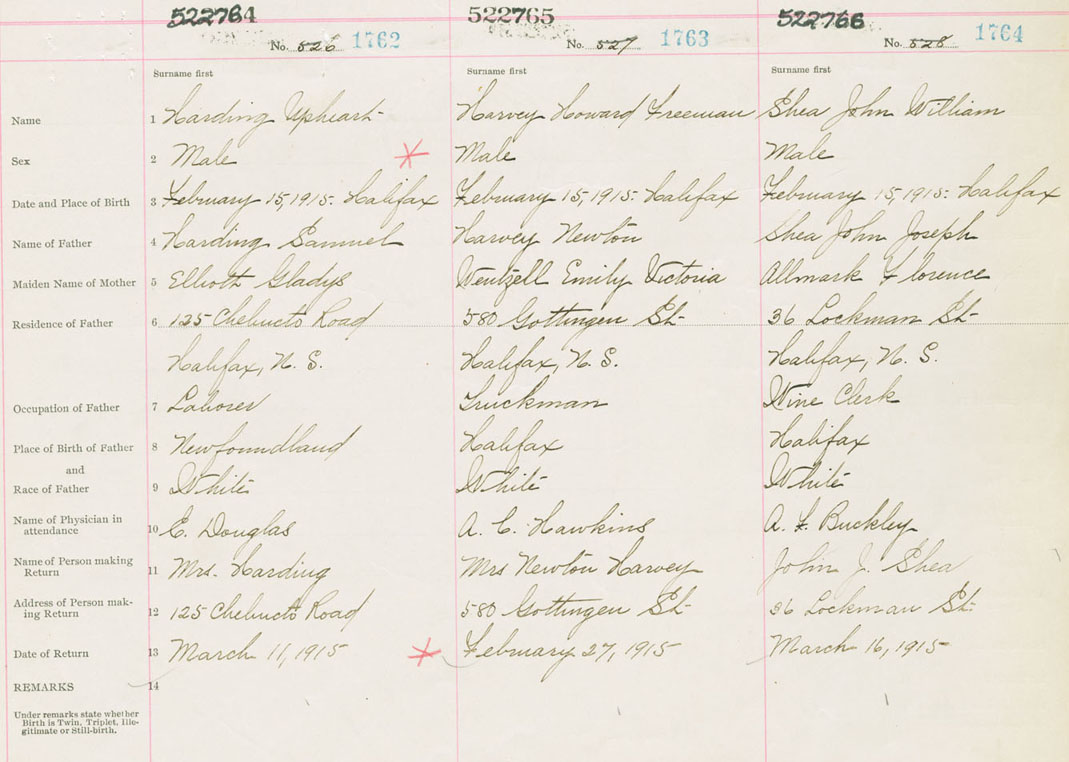 522764 522765 522766
No. 526 1762 No. 527 1763 No. 528 1764
Surname first Surname first Surname first
Name 1 Harding Upheart Harvey Howard Freeman Shea John William
Sex 2 Male Male Male
Date and Place of Birth 3 February 15, 1915. Halifax February 15, 1915. Halifax February 15, 1915. Halifax
Name of Father 4 Harding Samuel Harvey Newton Shea John Joseph
Maiden Name of Mother 5 Elliott Gladys Wentzell Emily Victoria Allmark Florence
Residence of Father 6 125 Chebucto Road 580 Gottingen St 36 Lockman St
Halifax, N. S. Halifax, N. S. Halifax, N. S.
Occupation of Father 7 Laborer Truckman Wine Clerk
Place of Birth of Father 8 Newfoundland Halifax Halifax
and
Race of Father 9 White White White
Name of Physician in
attendance 10 E. Douglas A. C. Hawkins A. F. Buckley
Name of Person making
Return 11 Mrs. Harding Mrs Newton Harvey John J. Shea
Address of Person mak-
ing Return 12 125 Chebucto Road 580 Gottingen St 36 Lockman St
Date of Return 13 March 11, 1915 February 27, 1915 March 16, 1915
REMARKS 14
Under remarks state whether
Birth is Twin, Triplet, Ille-
gitimate or Still-birth.